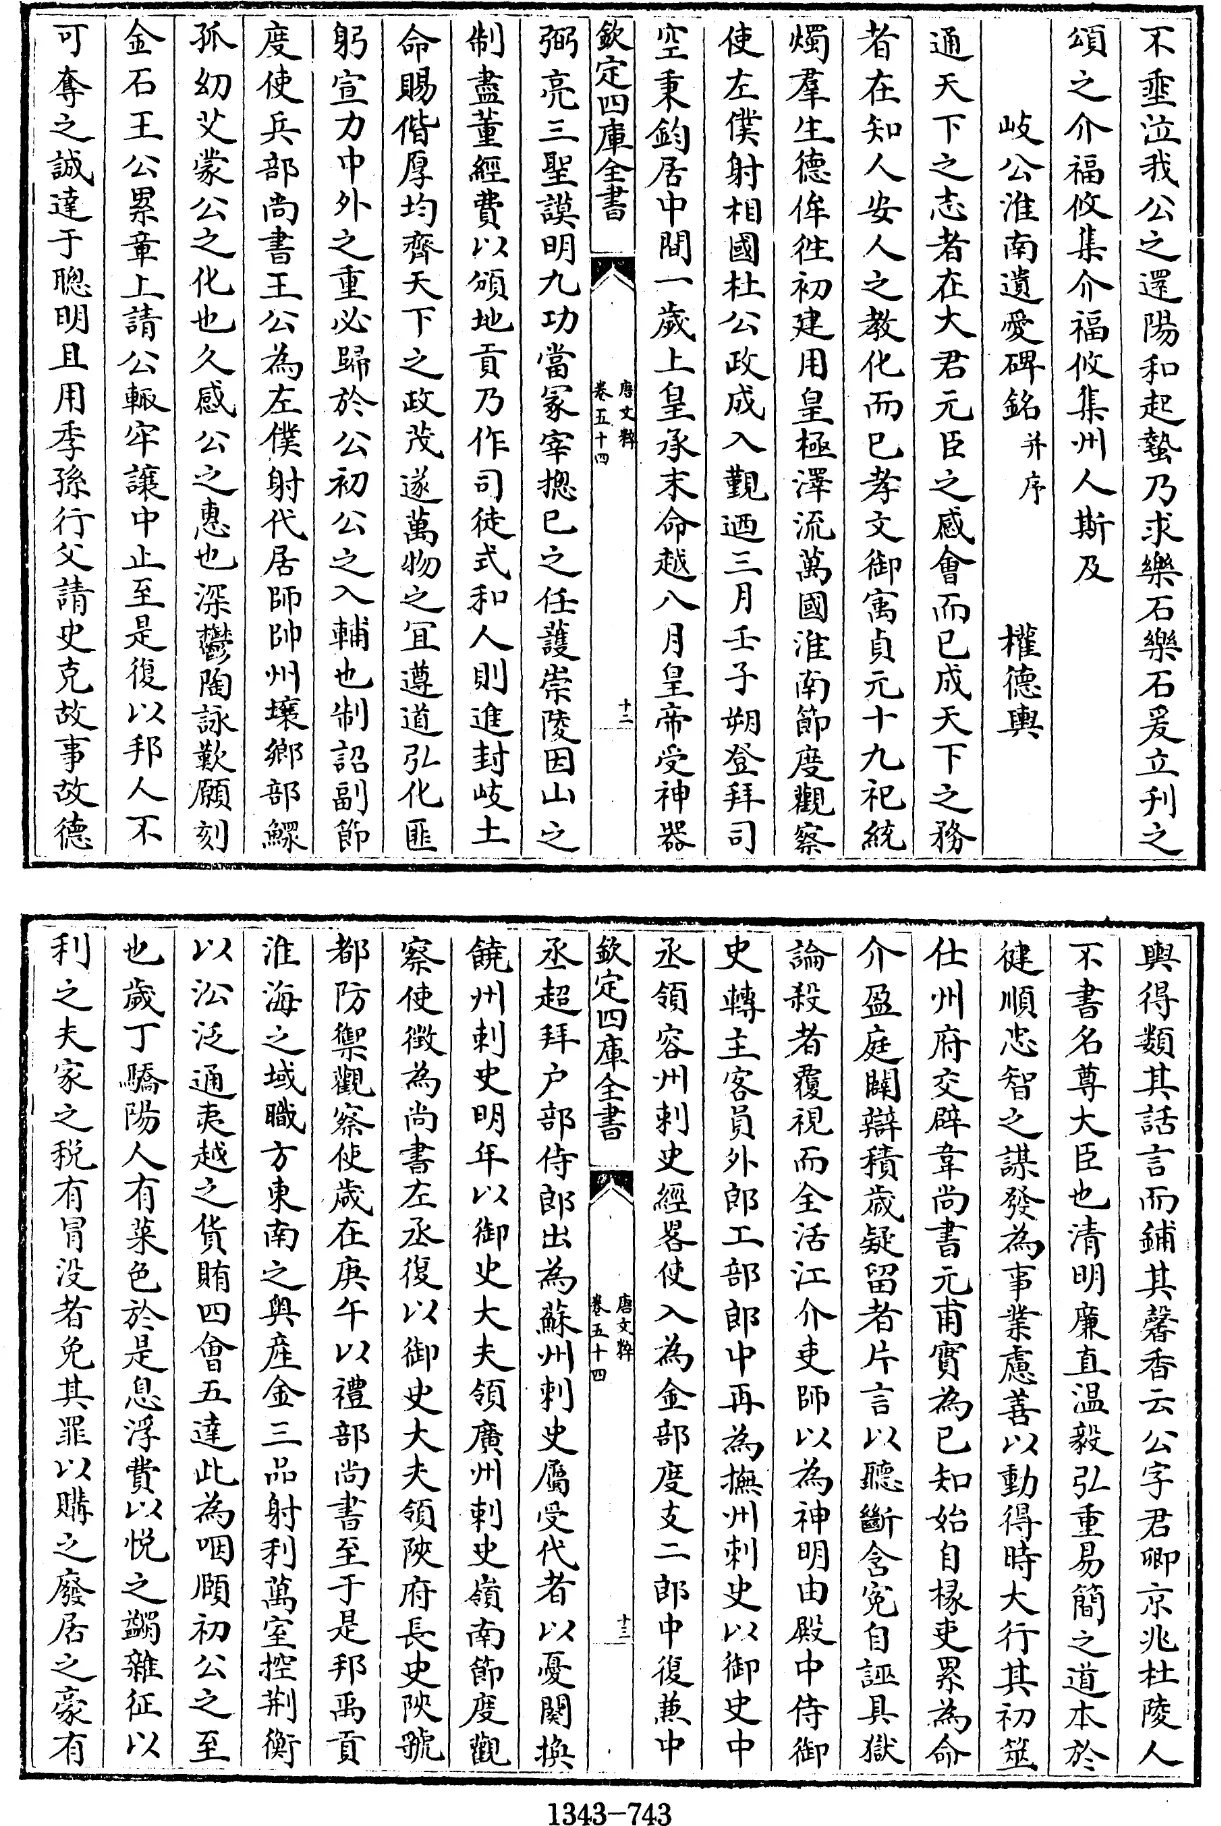 不垂泣我公之還陽和起蟄乃求樂石樂石爰立刋之
頌之介福攸集介福攸集州人斯及
岐公淮南遺愛碑銘并序 權德輿
通天下之志者在大君元臣之感會而已成天下之務
者在知人安人之教化而已孝文御寓貞元十九祀統
燭羣生德侔徃初建用皇極澤流萬國淮南節度觀察
使左僕射相國杜公政成入覲迺三月壬子朔登拜司
空秉鈞居中閒一歲上皇承末命越八月皇帝受神器
欽定四庫全書
唐文粹
卷五十四
十二
弼亮三聖謨明九功當冢宰摠已之任護崇陵因山之
制盡董經費以頒地貢乃作司徒式和人則進封岐土
命賜偕厚均齊天下之政茂遂萬物之宜遵道弘化匪
躬宣力中外之重必歸於公初公之入輔也制詔副節
度使兵部尚書王公為左僕射代居師帥州壤鄉部鰥
孤幼艾蒙公之化也久感公之惠也深鬱陶詠歎願刻
金石王公累章上請公輙牢讓中止至是復以邦人不
可奪之誠達于聰明且用季孫行父請史克故事故德
輿得類其話言而鋪其馨香云公字君卿京兆杜陵人
不書名尊大臣也清明廉直温毅弘重易簡之道本於
健順忠智之謀發為事業慮善以動得時大行其初筮
仕州府交辟韋尚書元甫實為已知始自椽吏累為命
介盈庭閧辯積歲疑留者片言以聽斷含寃自誣具獄
論殺者覆視而全活江介吏師以為神明由殿中侍御
史轉主客員外郎工部郎中再為撫州刺史以御史中
丞領容州刺史經畧使入為金部度支二郎中復兼中
欽定四庫全書
唐文粹
卷五十四
十三
丞超拜户部侍郎出為蘇州刺史屬受代者以憂闋換
饒州刺史明年以御史大夫領廣州刺史嶺南節度觀
察使徴為尚書左丞復以御史大夫領陜府長史陜虢
都防禦觀察使歲在庚午以禮部尚書至于是邦禹貢
淮海之域職方東南之奥産金三品射利萬室控荆衡
以㳂泛通夷越之貨賄四會五達此為咽頤初公之至
也歲丁驕陽人有菜色於是息浮費以悅之蠲雜征以
利之夫家之税有冒没者免其罪以購之廢居之豪有
1343-743